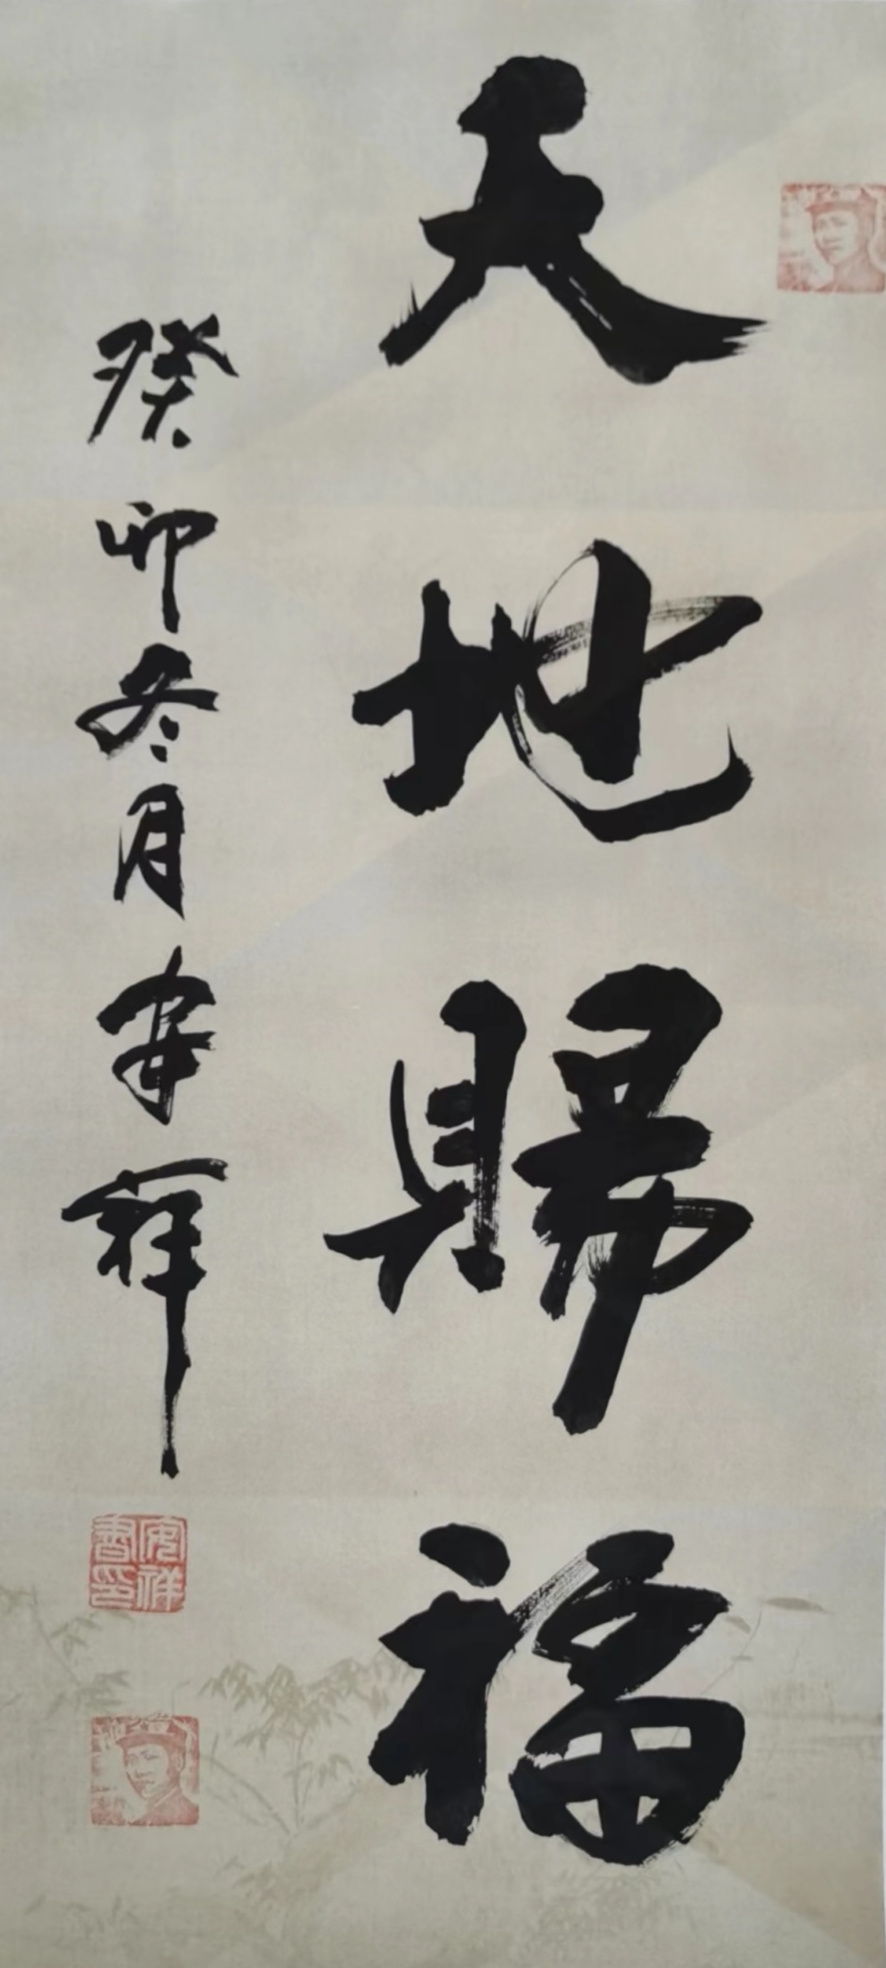 天地賜福
癸卯冬月安祥
安祥書印